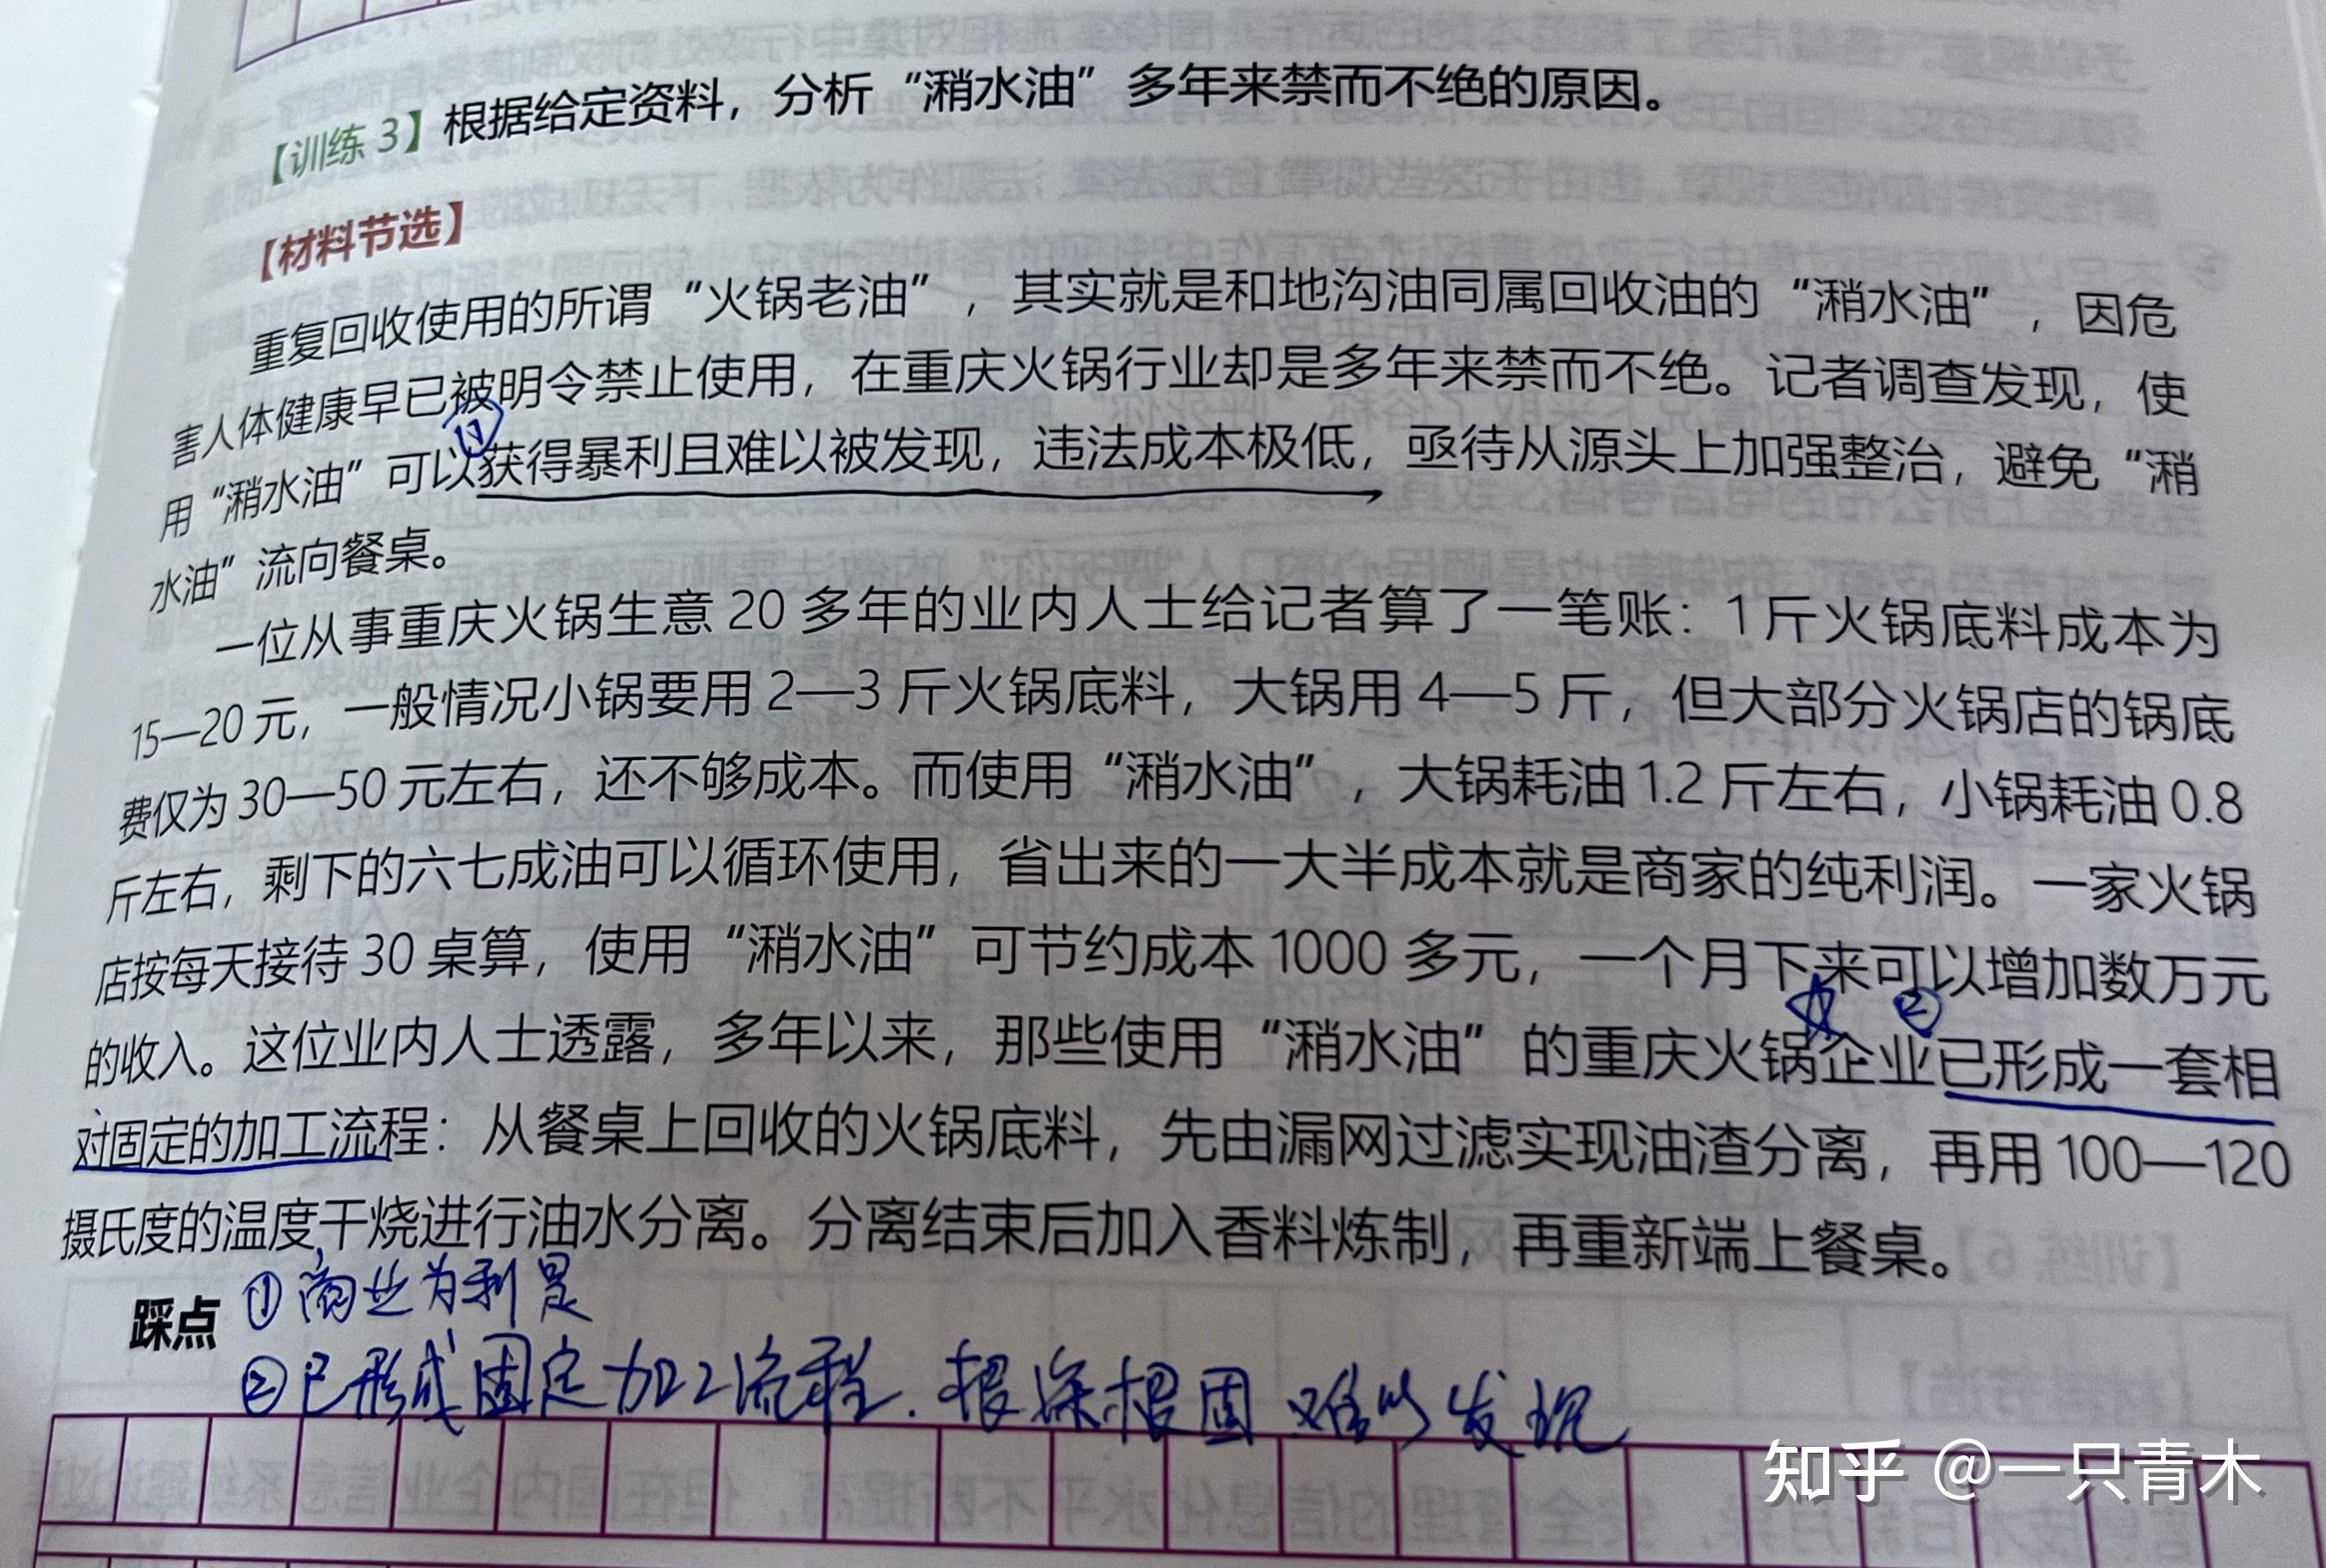 【训练 3】根据给定资料，分析“潲水油”多年来禁而不绝的原因。
【材料节选】
重复回收使用的所谓“火锅老油”，其实就是和地沟油同属回收油的“潲水油”，因危
害人体健康早已被明令禁止使用，在重庆火锅行业却是多年来禁而不绝。记者调查发现，使
①
用“潲水油”可以获得暴利且难以被发现，违法成本极低，亟待从源头上加强整治，避免“潲
水油”流向餐桌。
一位从事重庆火锅生意 20 多年的业内人士给记者算了一笔账：1 斤火锅底料成本为
15—20 元，一般情况小锅要用 2—3 斤火锅底料，大锅用 4—5 斤，但大部分火锅店的锅底
费仅为 30—50 元左右，还不够成本。而使用“潲水油”，大锅耗油 1.2 斤左右，小锅耗油 0.8
斤左右，剩下的六七成油可以循环使用，省出来的一大半成本就是商家的纯利润。一家火锅
店按每天接待 30 桌算，使用“潲水油”可节约成本 1000 多元，一个月下来可以增加数万元
②
的收入。这位业内人士透露，多年以来，那些使用“潲水油”的重庆火锅企业已形成一套相
对固定的加工流程：从餐桌上回收的火锅底料，先由漏网过滤实现油渣分离，再用 100—120
摄氏度的温度干烧进行油水分离。分离结束后加入香料炼制，再重新端上餐桌。
踩点 ①商业为利是
②已形成固定加工流程．根深根固 难以发现
知乎 @一只青木